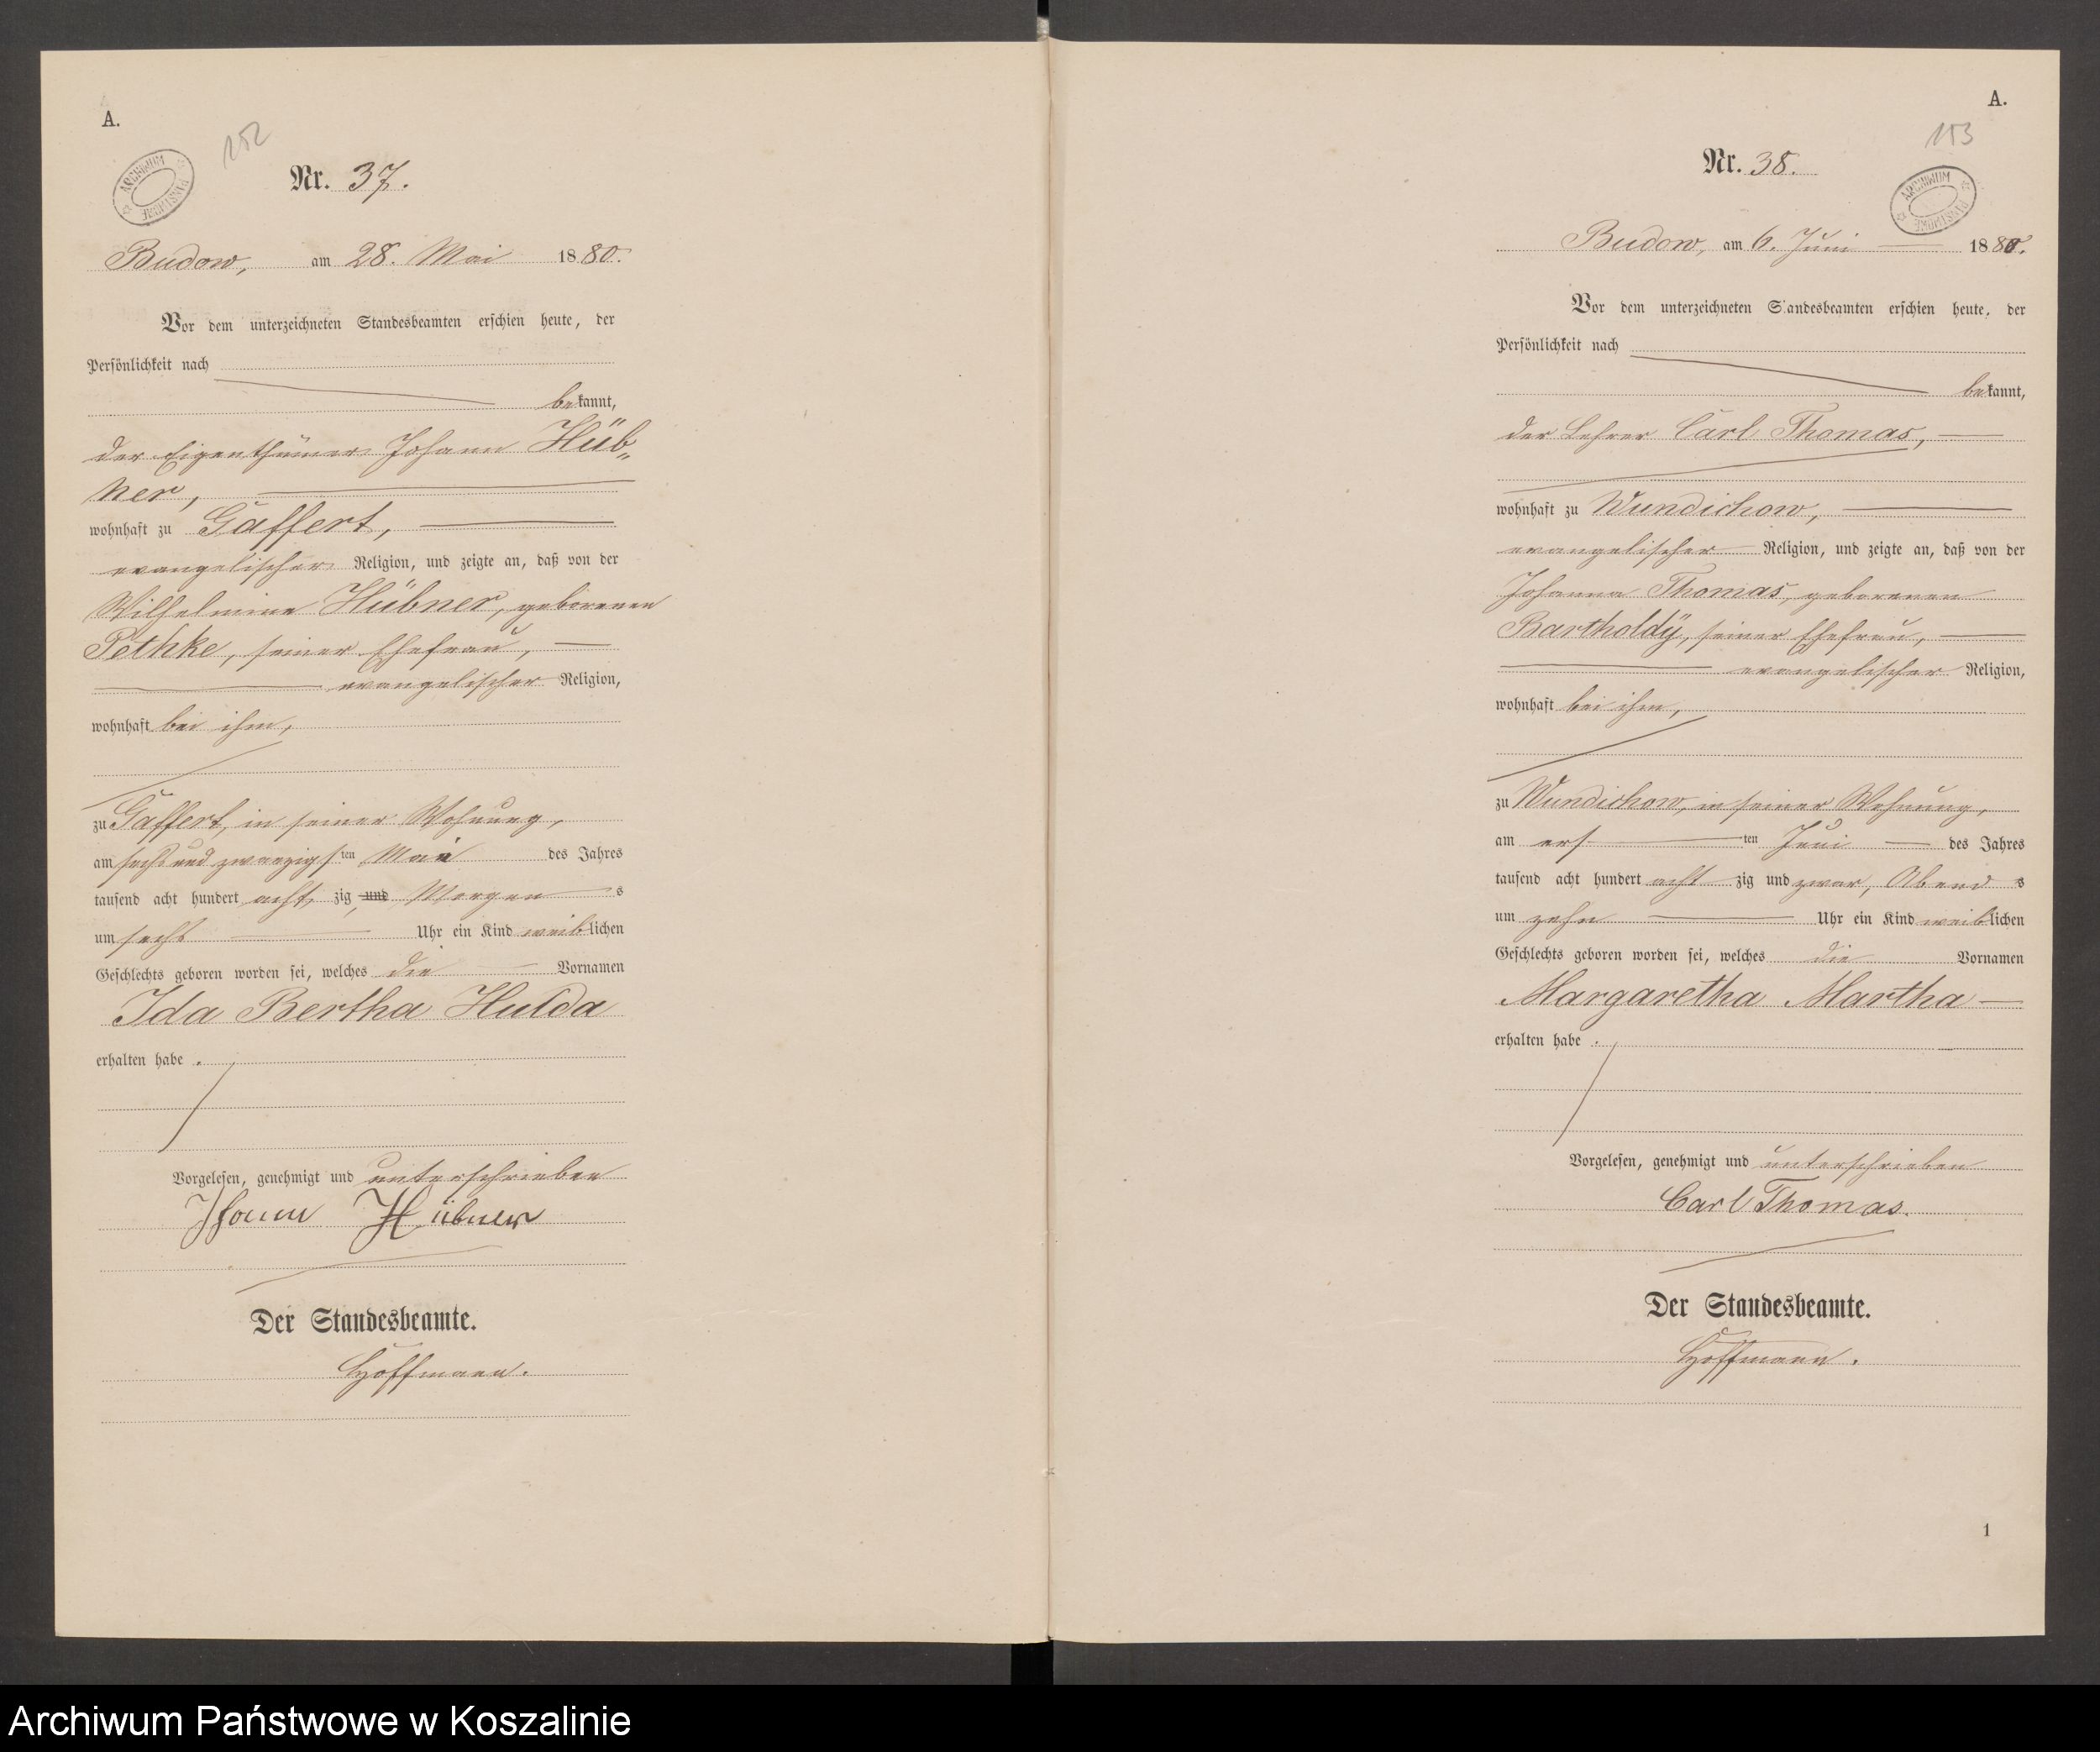 A.
152
ARCHIWUM PAŃSTWOWE
Nr. 37.
Budow, am 28. Mai 1880.
Vor dem unterzeichneten Standesbeamten erschien heute, der
Persönlichkeit nach
bekannt,
der Eigenthümer Johann Hüb„
ner,
wohnhaft zu Gaffert,
evangelischer Religion, und zeigte an, daß von der
Wilhelmine Hübner, geborenen
Pethke, seiner Ehefrau,
evangelischer Religion,
wohnhaft bei ihm,
zu Gaffert, in seiner Wohnung,
am sechs und zwanzigsten Mai des Jahres
tausend acht hundert acht zig und Morgens
um sechs Uhr ein Kind weiblichen
Geschlechts geboren worden sei, welches die Vornamen
Ida Bertha Hulda
erhalten habe.
Vorgelesen, genehmigt und unterschrieben
Johann Hübner
Der Standesbeamte.
Hoffmann.
A.
153
Nr. 38.
ARCHIWUM PAŃSTWOWE
Budow, am 6. Juni 1880.
Vor dem unterzeichneten Standesbeamten erschien heute, der
Persönlichkeit nach
bekannt,
der Lehrer Carl Thomas,
wohnhaft zu Wundichow,
evangelischer Religion, und zeigte an, daß von der
Johanna Thomas, geborenen
Bartholdÿ, seiner Ehefrau,
evangelischer Religion,
wohnhaft bei ihm,
zu Wundichow, in seiner Wohnung,
am ersten Juni des Jahres
tausend acht hundert acht zig und zwar, Abends
um zehn Uhr ein Kind weiblichen
Geschlechts geboren worden sei, welches die Vornamen
Margaretha Martha
erhalten habe.
Vorgelesen, genehmigt und unterschrieben
Carl Thomas.
Der Standesbeamte.
Hoffmann.
1
Archiwum Państwowe w Koszalinie